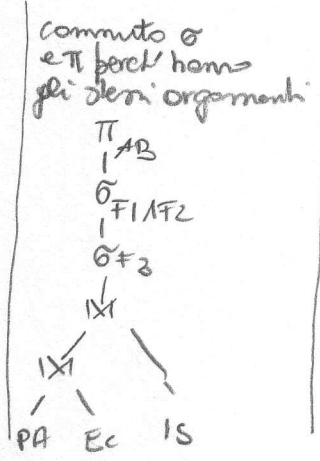 commuto σ
e π perch' hanno
gli stessi argomenti
π AB
σ F1∧F2
σ F3
⋈
⋈
PA EC IS